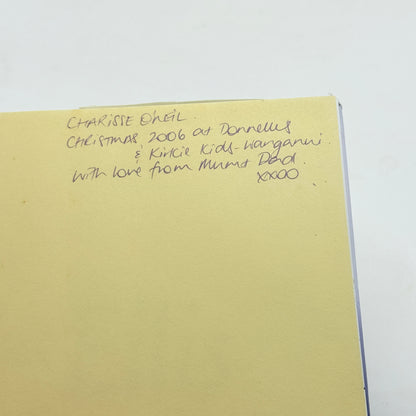 CHARISSE O'NEIL.
CHRISTMAS, 2006 at Donnellys
& Kirkie Kids - Wanganui.
With love from Mum & Dad.
xxOO